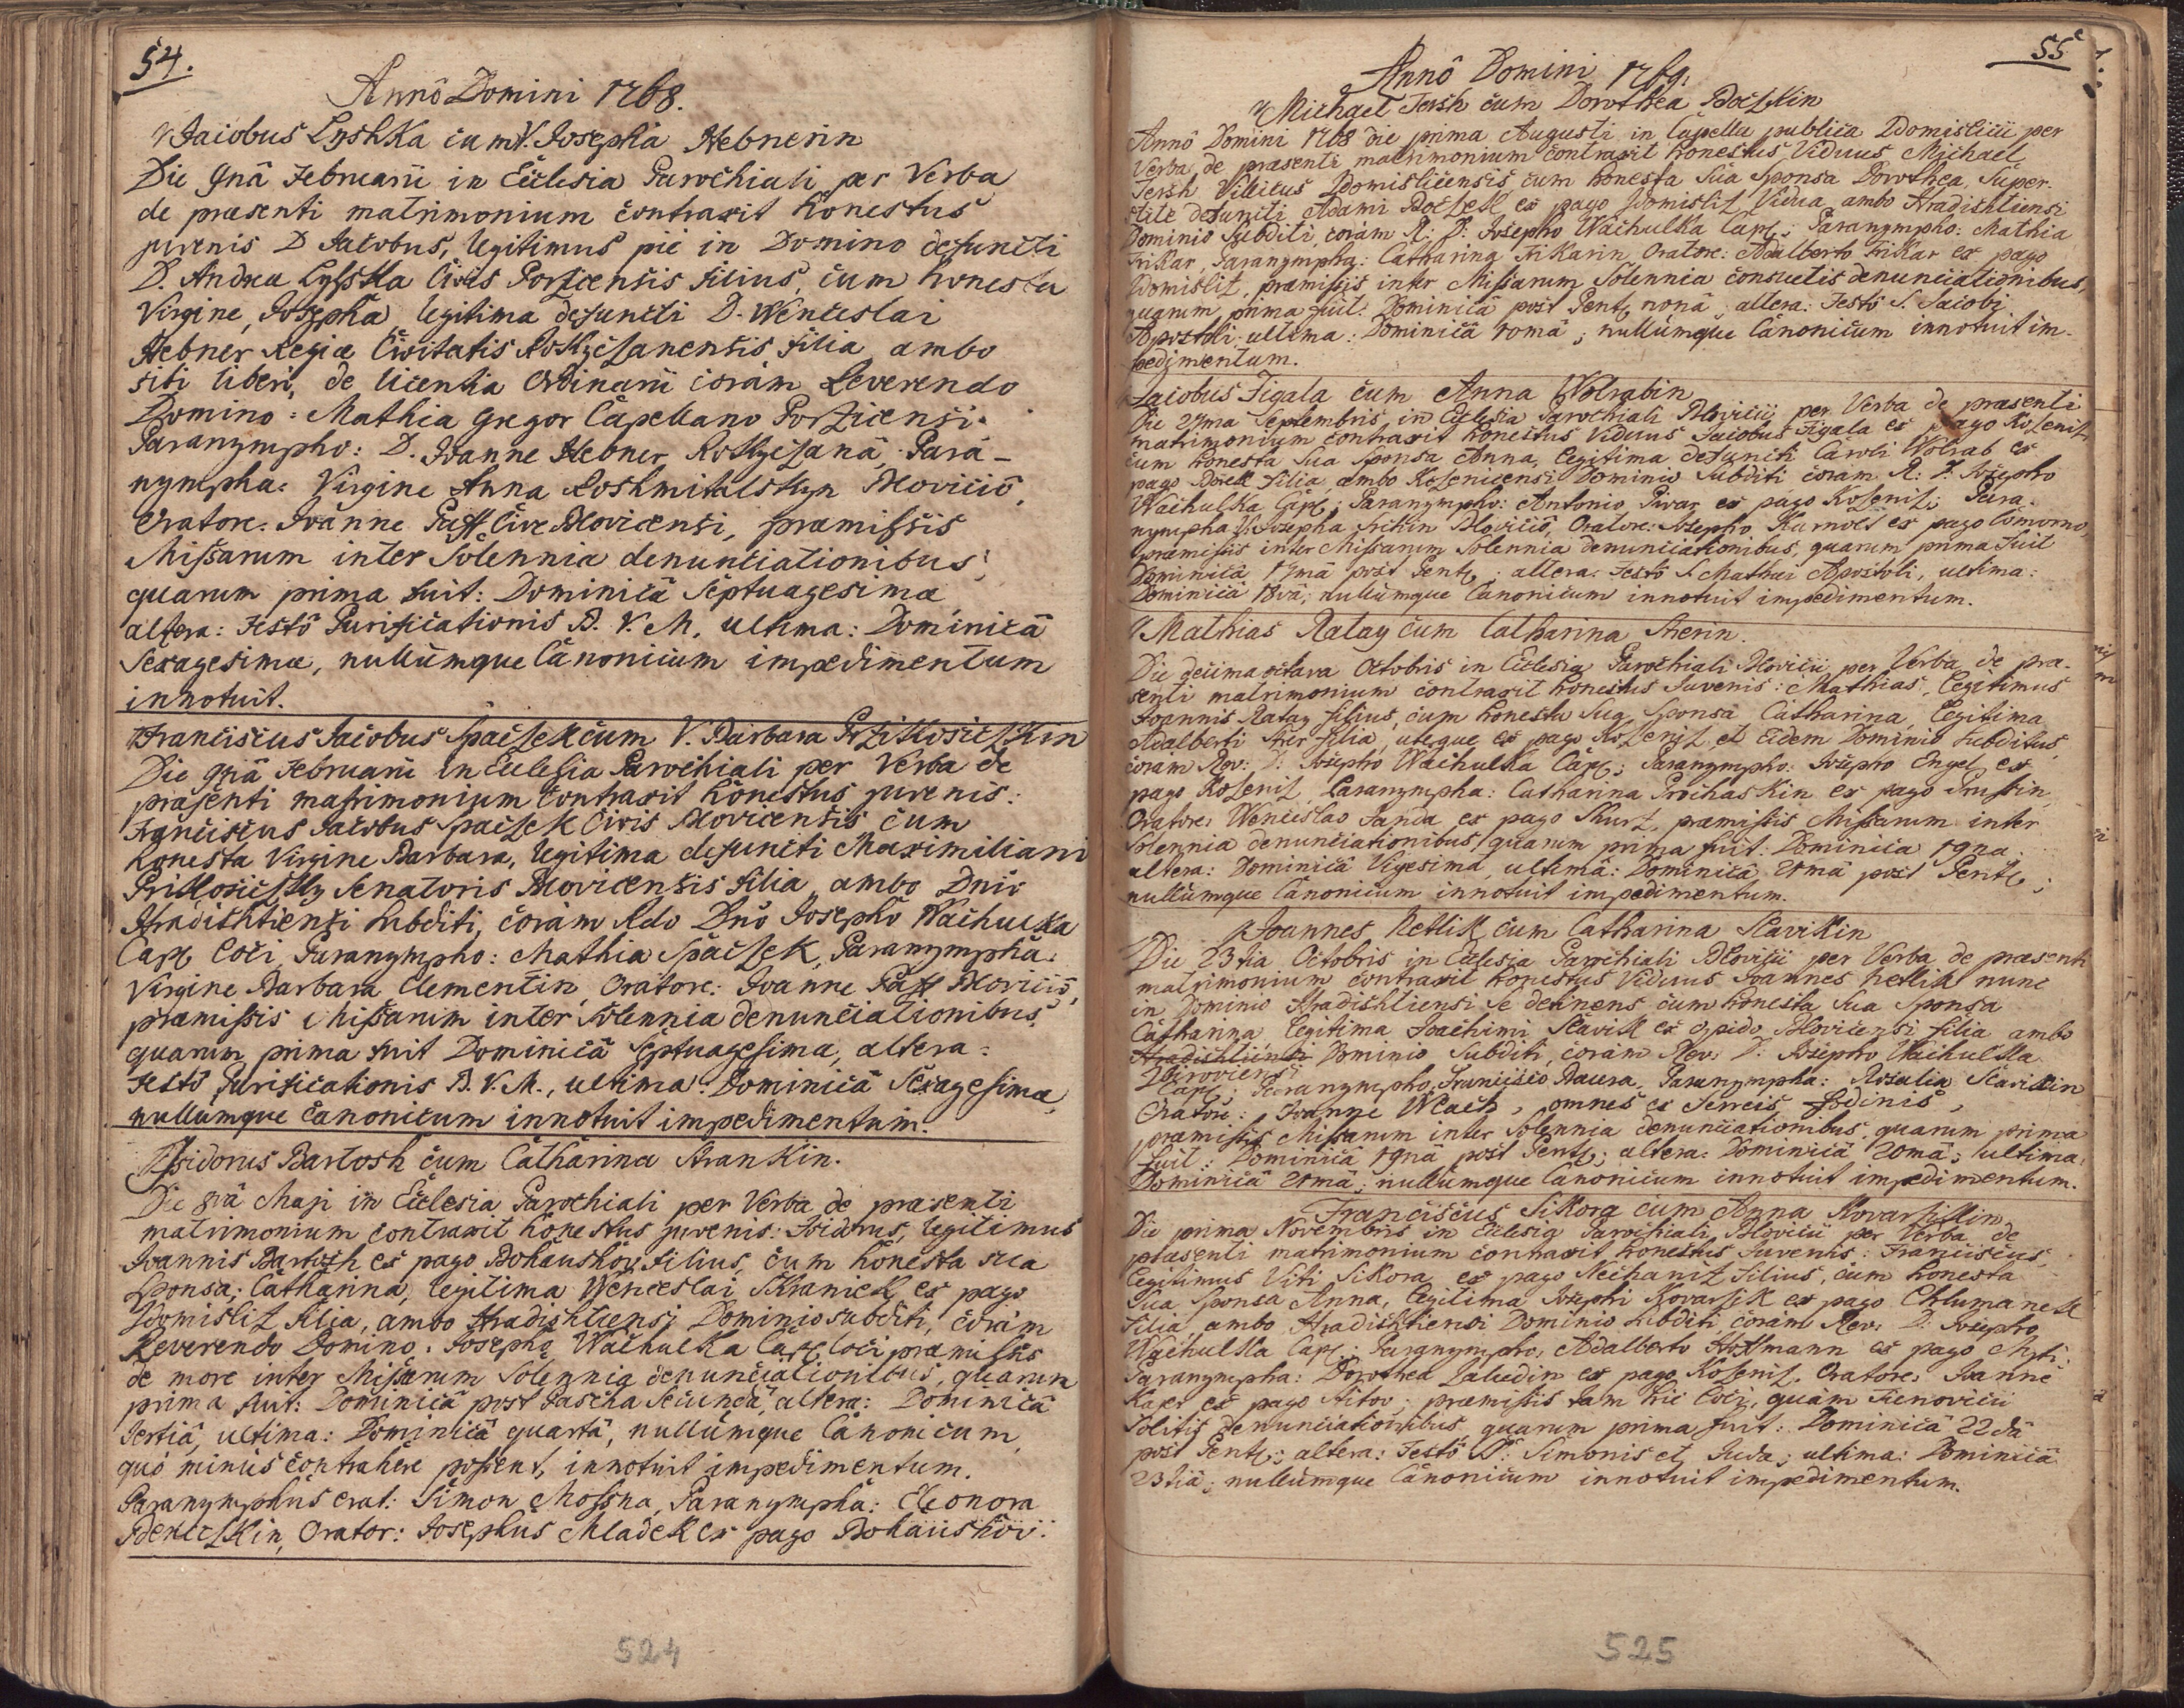 54.
Annô Domini 1768.
Jaiobus Lyshka cum V. Josepha Hebnerin
Die 9nâ Februarii in Ecclesia Parochiali per Verba
de praesenti matrimonium contraxit honestus
juvenis D Jacobus, legitimus piè in Domino defuncti
D. Andrea Lysska Civis Porzicensis filius, cum honesta
Virgine, Josepha legitima defuncti D. Wenceslai
Hebner Regiae Civitatis Rokyczanensis filia ambo
sibi liberi, de licentia Ordinarii coràm Reverendo
Domino: Mathia Gregor Capellano Porzicensi.
Paranympho: D. Joanne Hebner Rokyczanâ, Para-
nympha: Virgine Anna Roshmitalskyn Blovicio,
Oratore: Joanne Paff Cive Blovicensi, praemissis
Missarum inter Solennia denuntiationibus,
quarum prima fuit: Dominicâ Septuagesima
altera: Festô Purificationis B. V. M. ultima: Dominicâ
Sexagesimae, nullumque Canonicum impedimentum
innotuit.
Franciscus Jacobus Spaczek cum V. Barbara Przikosiczkin
Die 9nâ Februarii in Ecclesia Parochiali per Verba de
praesenti matrimonium contraxit honestus juvenis:
Franciscus Jacobus Spaczek Civis Blovicensis cum
honesta Virgine Barbara, legitima defuncti Maximiliani
Prikosiczky Senatoris Blovicensis filia ambo Dnio
Hradishtiensi subditi, coràm Rdo Dno Josepho Wachulka
Capl Loci, Paranympho: Mathia Spaczek, Paranympha:
Virgine Barbara Clementin, Oratore: Joanne Paff Blovicio,
praemissis Missarum inter Solennia denunciationibus,
quarum prima fuit Dominicâ Septuagesima, altera:
Festô Purificationis B. V. M., ultima: Dominicâ Sexagesimae,
nullumque Canonicum innotuit impedimentum.
Isidorus Bartosh cum Catharina Krankin.
Die 8vâ Maji in Ecclesia Parochiali per Verba de praesenti
matrimonium contraxit honestus juvenis: Isidorus, legitimus
Joannis Bartosh ex pago Bohaushov filius, cum honesta sua
Sponsa; Catharina, legitima Wenceslai Skranick ex pago
Zdomisliz filia, ambo Hradishtiensi Dominio subditi, coràm
Reverendo Domino: Josepho Wachulka Capl. Loci praemissis
de more inter Missarum Solennia denunciationibus, quarum
prima fuit: Dominicâ post Pascha Secundâ, altera: Dominicâ
Tertiâ, ultima: Dominicâ quartâ, nullumque Canonicum
quò minus contrahere possent, innotuit impedimentum.
Paranymphus erat: Simon Mossna, Paranympha: Eleonora
Orator: Josephus Mladek ex pago Bohaushov.
524
55
Annô Domini 1769.
Michael Jersh cum Dorothea Boczkin
Annô Domini 1768 die prima Augusti in Capella publica Zdomislicii per
Verba de praesenti matrimonium contraxit honestus Viduus Michael
Jersh Villicus Zdomislicensis cum honesta Sua Sponsa Dorothea, Super-
stite defuncti Adami Boczek ex pago Zdomisliz Vidua ambo Hradishtiensi
Dominio Subditi, coràm R: D: Josepho Wachulka Capl; Paranympho: Mathia
Frikar, Paranympha: Catharina Frikarin Oratore: Adalberto Frikar ex pago
Zdomisliz, praemissis inter Missarum Solennia consuetis denunciationibus,
quarum prima fuit: Dominicâ post Pent. nonâ, altera: Festô S. Jacobi
Apostoli ultima: Dominicâ 10mâ; nullumque Canonicum innotuit im-
pedimentum.
Jacobus Figala cum Anna Wolrabin
Die 27ma Septembris in Ecclesia Parochiali Blovicii per Verba de praesenti
matrimonium contraxit honestus Viduus Jacobus Figala ex pago Kozeniz
cum honesta Sua Sponsa Anna, legitima defuncti Caroli Wolrab ex
pago filia ambo Kozenicensi Dominio Subditi coràm R: D. Josepho
Wachulka Capl; Paranympho: Antonio Pivar ex pago Kozeniz; Para-
nympha V. Josepha Blovicio, Oratore: Josepho ex pago
praemissis inter Missarum Solennia denunciationibus, quarum prima fuit
Dominicâ 17mâ post Pent.; altera: Festô S. Mathaei Apostoli, ultima:
Dominicâ 18vâ; nullumque Canonicum innotuit impedimentum.
Mathias Ratay cum Catharina
Die decima octava Octobris in Ecclesia Parochiali Blovicii per Verba de prae-
senti matrimonium contraxit honestus Juvenis: Mathias, legitimus
Joannis Ratay filius, cum honesta Sua Sponsa Catharina, legitima
Adalberti filia, uterque ex pago Kozeniz et Eidem Dominio Subditus,
coram Rev: D: Josepho Wachulka Capl; Paranympho: Josepho Engel ex
pago Kozeniz, Paranympha: Catharina Prochaskin ex pago
Oratore: Wenceslao Janda ex pago Skurz, praemissis Missarum inter
Solennia denunciationibus, quarum prima fuit: Dominica 19na
altera: Dominicâ Vigesimâ, ultimâ: Dominicâ 21mâ post Pent;
nullumque Canonicum innotuit impedimentum.
Joannes Netlik cum Catharina Slavikin
Die 23tia Octobris in Ecclesia Parochiali Blovicii per Verba de praesenti
matrimonium contraxit honestus Viduus Joannes Netlik nunc
in Dominio Hradishtiensi Se detinens cum honesta Sua Sponsa
Catharina legitima Joachimi Slavik ex opido Blovicensi filia ambo
Hradishtiensi Dominio Subditi, coràm Rev: D: Josepho Wachulka
Capl; Paranympho: Francisco Baura, Paranympha: Rosalia Slavikin
Oratore: Joanne Wlach, omnes ex ferreis fodinis,
praemissis Missarum inter Solennia denunciationibus, quarum prima
fuit: Dominicâ 19nâ post Pent; altera: Dominicâ 20mâ; ultima:
Dominicâ 21mâ; nullumque Canonicum innotuit impedimentum.
Franciscus Sikora cum Anna Kovarzikin
Die prima Novembris in Ecclesia Parochiali Blovicii per Verba de
praesenti matrimonium contraxit honestus Juvenis: Franciscus,
legitimus Viti Sikora ex pago Nechaniz filius, cum honesta
Sua Sponsa Anna, legitima Josephi Kovarzik ex pago Chlumanek
filia, ambo Hradishtiensi Dominio subditi, coràm Rev: D: Josepho
Wachulka Capl; Paranympho: Adalberto Hoffmann ex pago Mzti;
Paranympha: Dorothea Zaludin ex pago Kozeniz, Oratore: Joanne
ex pago Sitov; praemissis tam hic Loci, quàm
Solitis denunciationibus, quarum prima fuit: Dominicâ 22dâ
post Pent.; altera: Festô SS: Simonis et Juda; ultima: Dominicâ
23tiâ; nullumque Canonicum innotuit impedimentum.
525